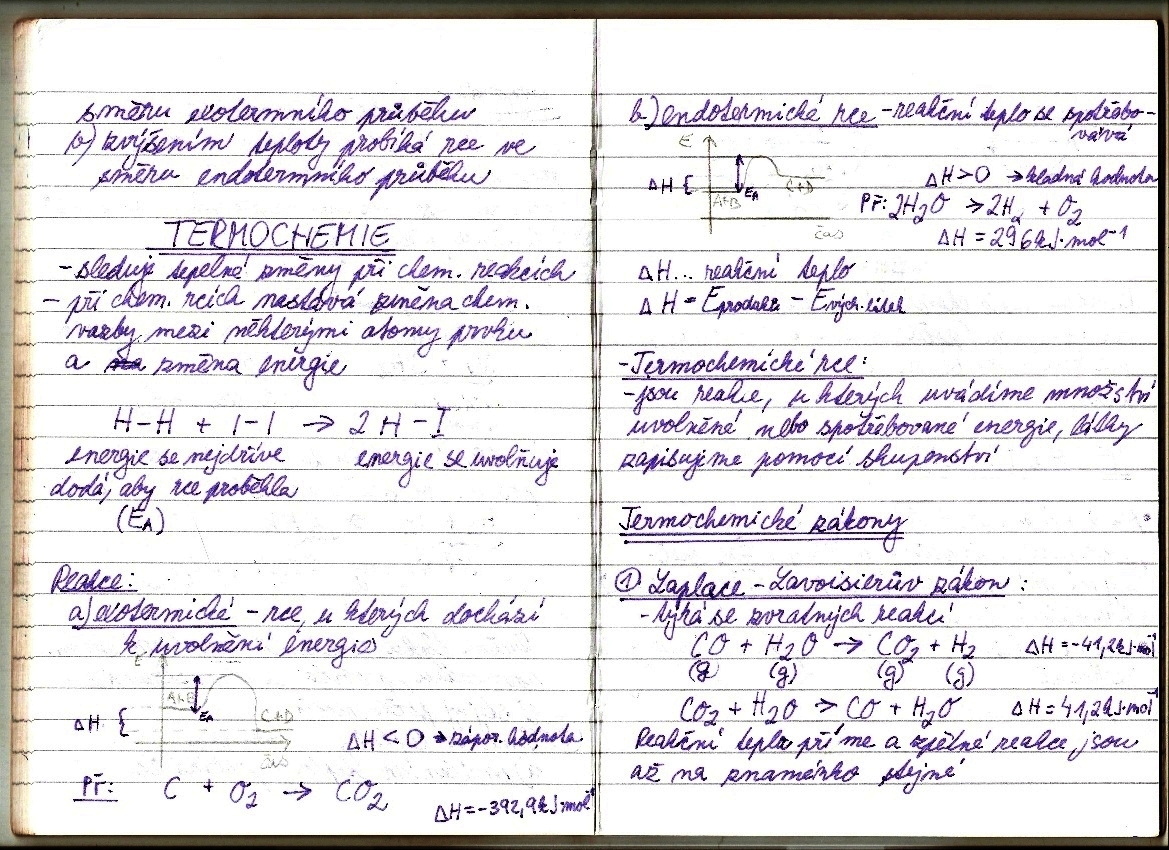 směru exotermního průběhu
b) zvýšením teploty probíhá rce ve
směru endotermního průběhu
TERMOCHEMIE
- sleduje tepelné změny při chem. reakcích
- při chem. rcích nastává změna chem.
vazby mezi některými atomy prvku
a změna energie
H-H + I-I → 2 H-I
energie se nejdříve energie se uvolňuje
dodá, aby rce proběhla
(EA)
Reakce:
a) exotermické - rce, u kterých dochází
k uvolnění energie
E
A+B
EA
C+D
ΔH {
čas
ΔH < 0 → zápor. hodnota
Př: C + O2 → CO2
ΔH = -392,9 kJ·mol-1
b) endotermické rce - reakční teplo se spotřebo-
vává
E
ΔH {
A+B
EA
C+D
čas
ΔH > 0 → kladná hodnota
Př: 2H2O → 2H2 + O2
ΔH = 296 kJ·mol-1
ΔH... reakční teplo
ΔH = Eproduktů - Evých. látek
- Termochemické rce:
- jsou reakce, u kterých uvádíme množství
uvolněné nebo spotřebované energie, látky
zapisujeme pomocí skupenství
Termochemické zákony
① Laplace - Lavoisierův zákon:
- týká se zvratných reakcí
CO + H2O → CO2 + H2 ΔH = -41,2 kJ·mol-1
(g) (g) (g) (g)
CO2 + H2O → CO + H2O ΔH = 41,2 kJ·mol-1
Reakční tepla přímé a zpětné reakce jsou
až na znaménko stejné